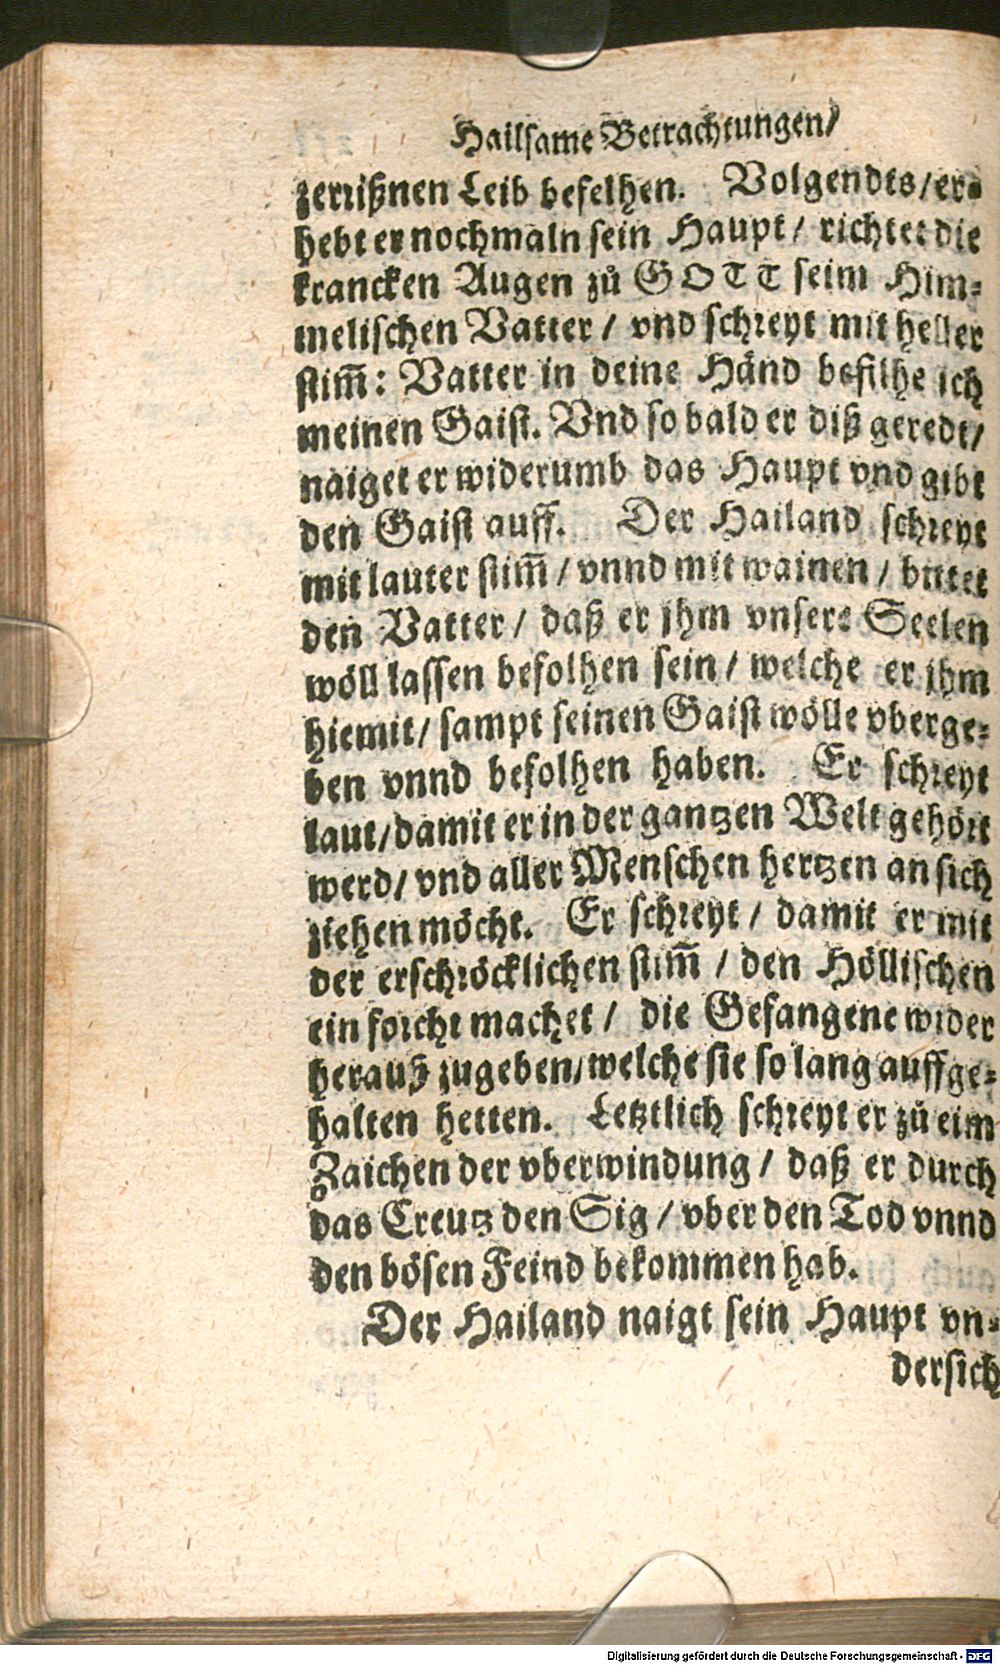 Hailsame Betrachtungen/
zerrißnen Leib befelhen. Volgendts/er-
hebt er nochmaln sein Haupt/ richtet die
krancken Augen zů GOTT seim Him-
melischen Vatter / vnd schreyt mit heller
stim̃: Vatter in deine Händ befilhe ich
meinen Gaist. Vnd so bald er diß geredt/
naiget er widerumb das Haupt vnd gibt
den Gaist auff. Der Hailand schreyt
mit lauter stim̃ / vnnd mit wainen / bittet
den Vatter / daß er jhm vnsere Seelen
wöll lassen befolhen sein / welche er jhm
hiemit/ sampt seinen Gaist wölle vberge-
ben vnnd befolhen haben. Er schreyt
laut/damit er in der gantzen Welt gehört
werd/ vnd aller Menschen hertzen an sich
ziehen möcht. Er schreyt / damit er mit
der erschröcklichen stim̃ / den Höllischen
ein forcht machet / die Gefangene wider
herauß zugeben/welche sie so lang auffge-
halten hetten. Letztlich schreyt er zů eim
Zaichen der vberwindung / daß er durch
das Creutz den Sig / vber den Tod vnnd
den bösen Feind bekommen hab.
Der Hailand naigt sein Haupt vn-
dersich
Digitalisierung gefördert durch die Deutsche Forschungsgemeinschaft - DFG